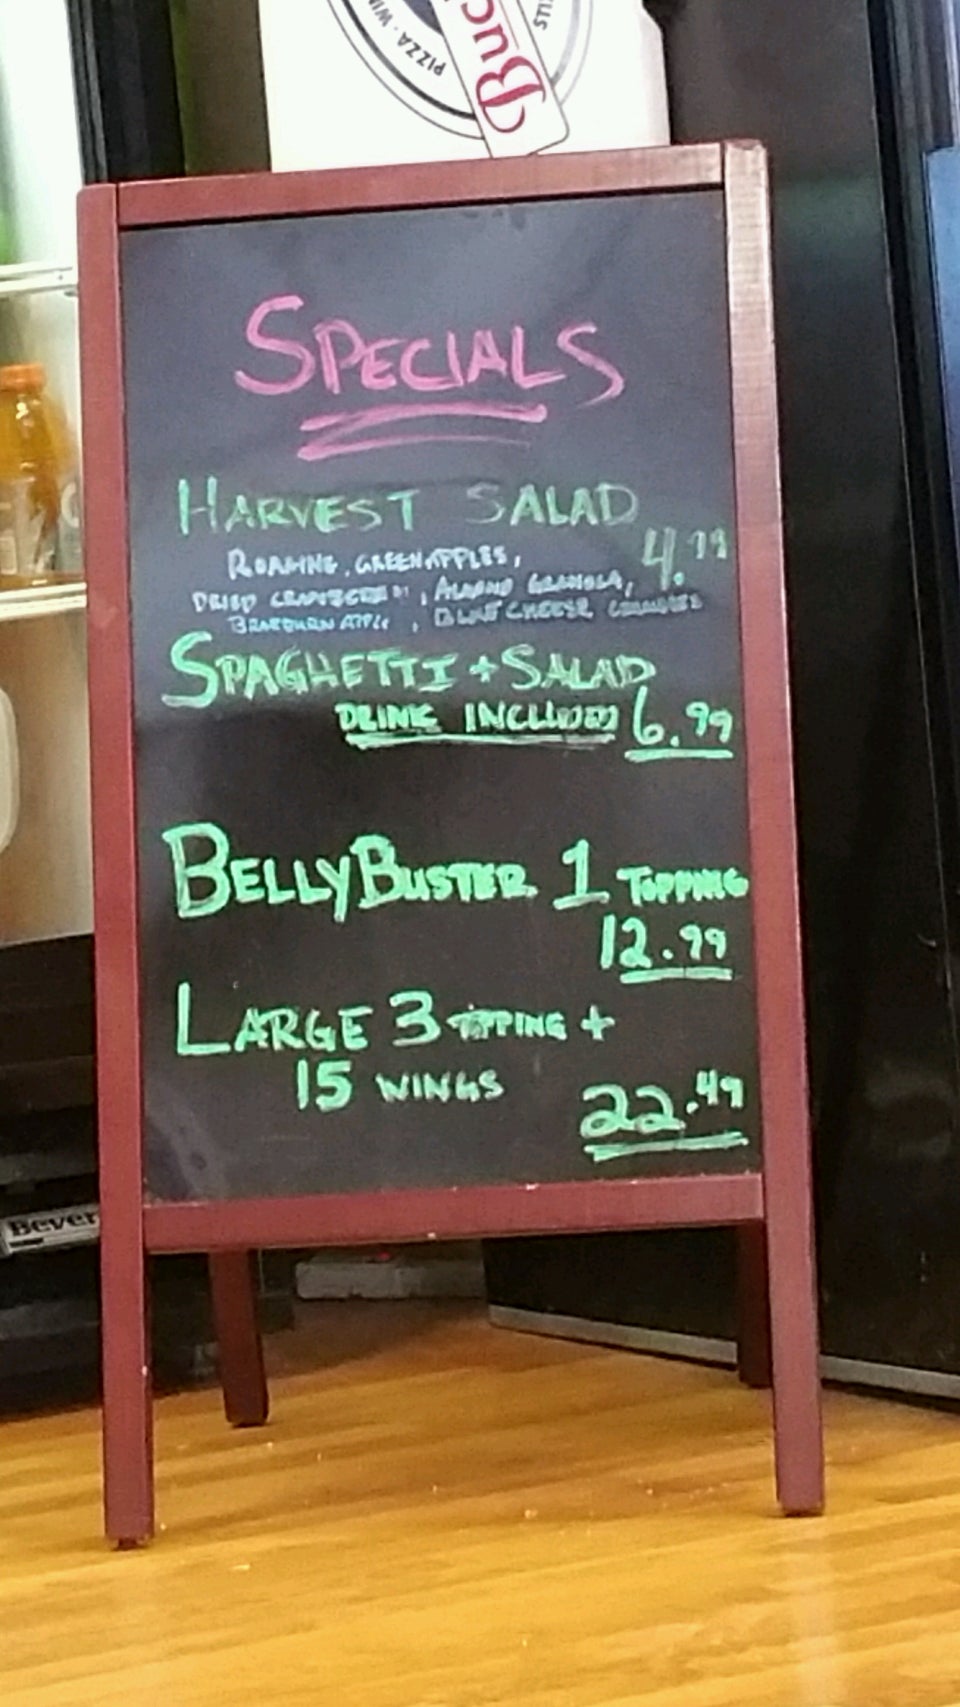 PIZZA · WIN
Buc
SPECIALS
HARVEST SALAD
4.99
ROMAINE, GREEN APPLES,
DRIED CRANBERRY, ALMOND GRANOLA,
BRAEBURN APPLE, BLUE CHEESE CRUMBLES
SPAGHETTI + SALAD
DRINK INCLUDED 6.99
BELLYBUSTER 1 TOPPING
12.99
LARGE 3 TOPPING +
15 WINGS
22.49
Bever